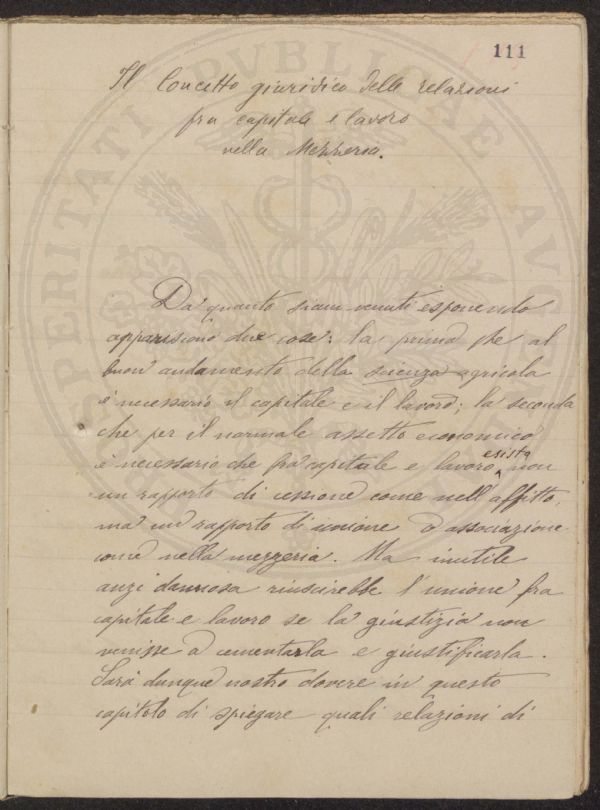 111
Il Concetto giuridico delle relazioni
fra capitale e lavoro
nella Mezzeria.
Da quanto siam venuti esponendo
appariscono due cose: la prima che al
buon andamento della scienza agricola
è necessario il capitale e il lavoro; la seconda
che per il normale assetto economico
è necessario che fra capitale e lavoro esista non
un rapporto di cessione come nell'affitto,
ma un rapporto di unione o associazione
come nella mezzeria. Ma inutile
anzi dannosa riuscirebbe l'unione fra
capitale e lavoro se la giustizia non
venisse a cementarla e giustificarla.
Sarà dunque nostro dovere in questo
capitolo di spiegare quali relazioni di
PROSPERITATI PVBLICAE AVGENDAE